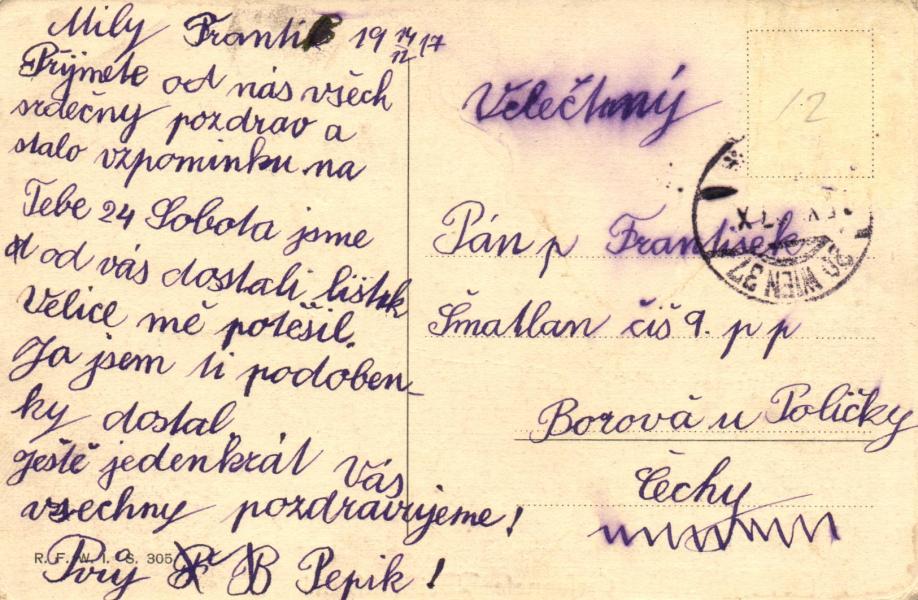 Milý Frantík 19 14/12 17
Přijmête od nás všech
srdečný pozdrav a
stalo vzpomínku na
Tebe 24 Sobota jsme
od vás dostali lístek
Velice mě potěšil.
Ja jsem ti podoben-
ky dostal,
ještě jedenkrát Vás
vsechny pozdravujeme!
Pepik!
R. F. W. I. S. 305
12
Velečtěný
Pán p František
Šmatlan čis 9. p p
Borová u Poličky
Čechy
WIEN 37